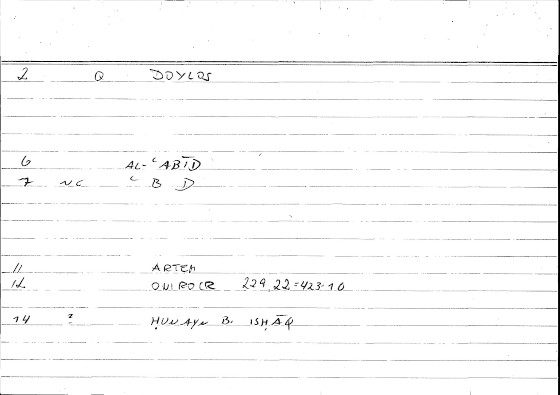 2 Q DOYLOS
6 AL-ʿABĪD
7 NC ʿ B D
11 ARTEM
12 ONIROCR 229,22=423.10
14 ? ḤUNAYN B. ISḤĀQ